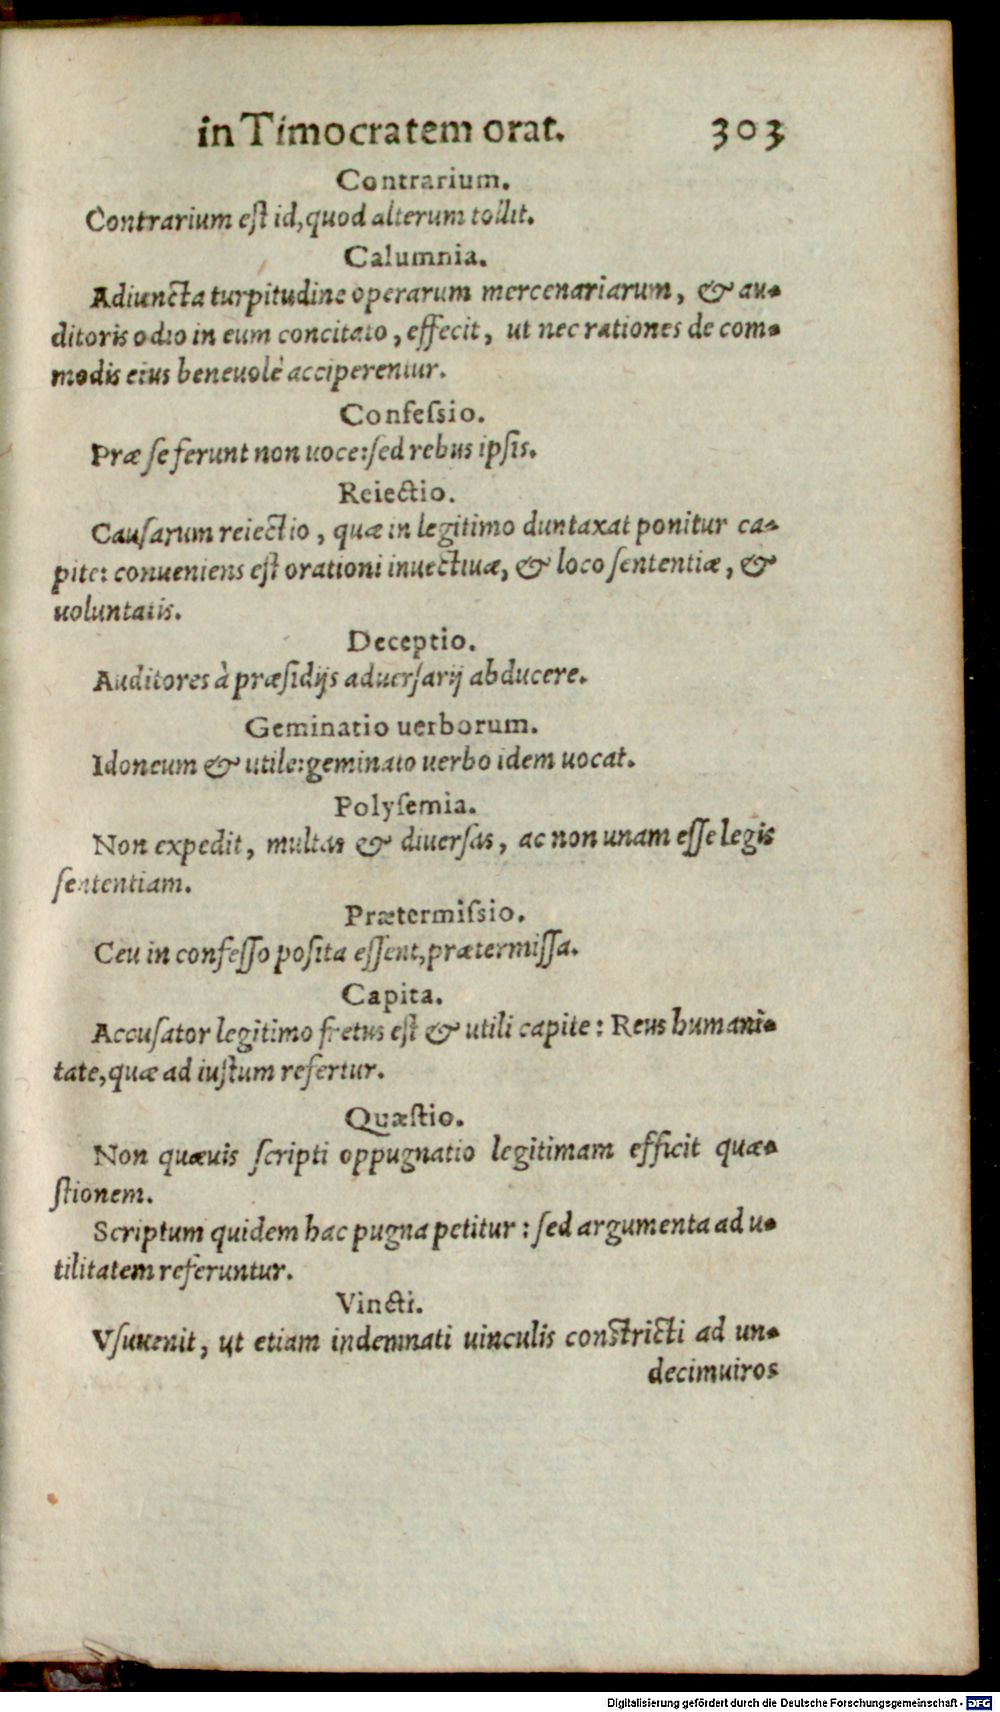 in Timocratem orat. 303
Contrarium.
Contrarium eſt id, quod alterum tollit.
Calumnia.
Adiuncta turpitudine operarum mercenariarum, & au-
ditoris odio in eum concitato, effecit, ut nec rationes de com-
modis eius beneuolè acciperentur.
Confeſsio.
Præ ſe ferunt non uoce: ſed rebus ipſis.
Reiectio.
Cauſarum reiectio, quæ in legitimo duntaxat ponitur ca-
pite: conueniens eſt orationi inuectiuæ, & loco ſententiæ, &
uoluntatis.
Deceptio.
Auditores à præſidijs aduerſarij abducere.
Geminatio uerborum.
Idoneum & utile: geminato uerbo idem uocat.
Polyſemia.
Non expedit, multas & diuerſas, ac non unam eſſe legis
ſententiam.
Prætermiſsio.
Ceu in confeſſo poſita eſſent, prætermiſſa.
Capita.
Accuſator legitimo fretus eſt & utili capite: Reus humani-
tate, quæ ad iuſtum refertur.
Quæſtio.
Non quæuis ſcripti oppugnatio legitimam efficit quæ-
ſtionem.
Scriptum quidem hac pugna petitur: ſed argumenta ad u-
tilitatem referuntur.
Vincti.
Vſuuenit, ut etiam indemnati uinculis conſtricti ad un-
decimuiros
Digitalisierung gefördert durch die Deutsche Forschungsgemeinschaft - DFG